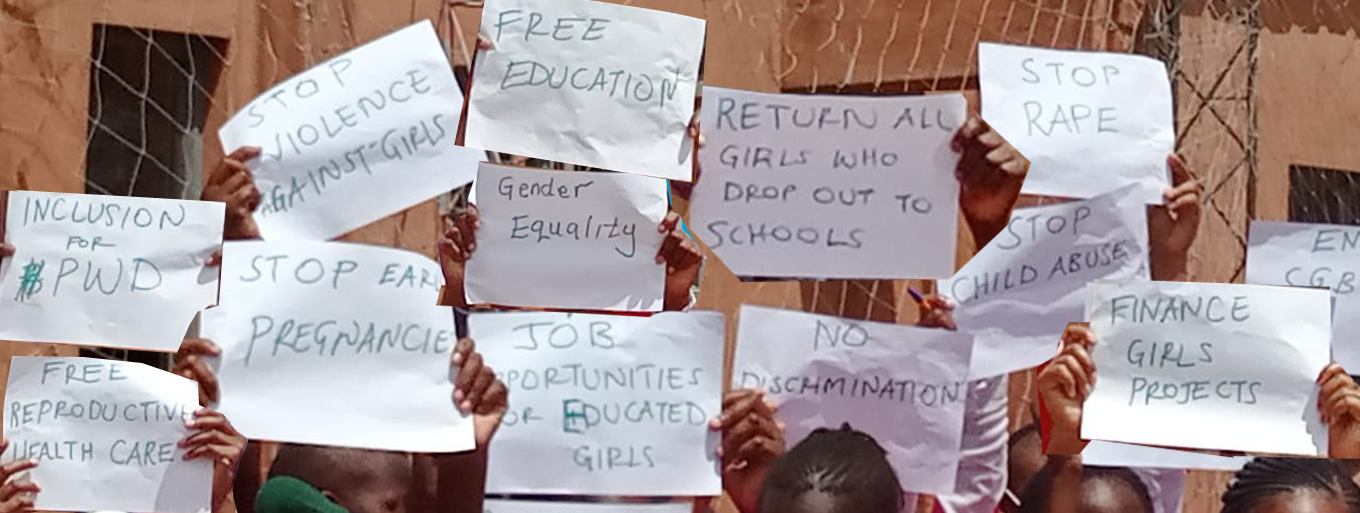 STOP
VIOLENCE
AGAINST GIRLS
FREE
EDUCATION
RETURN ALL
GIRLS WHO
DROP OUT TO
SCHOOLS
STOP
RAPE
INCLUSION
FOR
PWD
STOP EAR
PREGNANCIE
Gender
Equality
STOP
CHILD ABUSE
EN
CGB
FREE
REPRODUCTIVE
HEALTH CARE
JOB
PPORTUNITIES
OR EDUCATED
GIRLS
NO
DISCHMINATION
FINANCE
GIRLS
PROJECTS